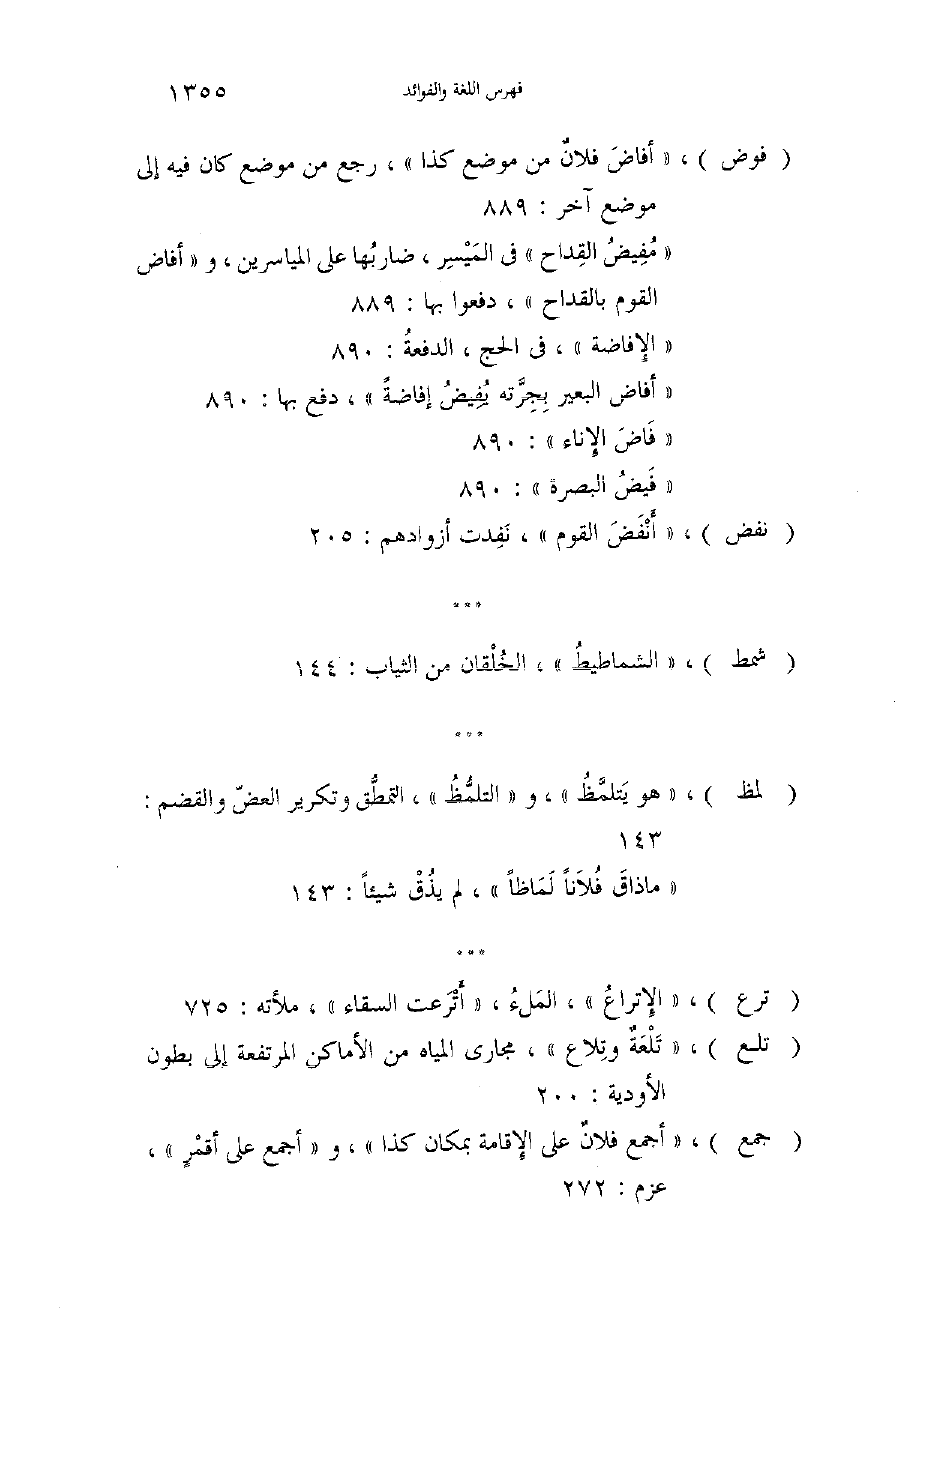 فهرس اللغة والفوائد ١٣٥٥
( فوض ) ، « أفاضَ فلانٌ من موضع كذا » ، رجع من موضع كان فيه إلى
موضع آخر : ٨٨٩
« مُفِيضُ القِداح » فى المَيْسِر ، ضاربُها على المياسرين ، و « أفاض
القوم بالقداح » ، دفعوا بها : ٨٨٩
« الإِفاضة » ، فى الحج ، الدفعةُ : ٨٩٠
« أفاض البعير بِجِرَّته يُفِيضُ إفاضةً » ، دفع بها : ٨٩٠
« فَاضَ الإِناء » : ٨٩٠
« فَيضُ البصرة » : ٨٩٠
( نفض ) ، « أَنْفَضَ القوم » ، نَفِدت أزوادهم : ٢٠٥
***
( شمط ) ، « الشماطيطُ » ، الخُلْقان من الثياب : ١٤٤
***
( لمظ ) ، « هو يَتلمَّظُ » ، و « التلمُّظُ » ، التمطُّق وتكرير العضّ والقضم :
١٤٣
« ماذاقَ فُلاَناً لَمَاظاً » ، لم يذُقْ شيئاً : ١٤٣
***
( ترع ) ، « الإِتراعُ » ، المَلءُ ، « أَتْرَعت السقاء » ، ملأته : ٧٢٥
( تلع ) ، « تَلْعَةٌ وتِلاع » ، مجارى المياه من الأماكن المرتفعة إلى بطون
الأودية : ٢٠٠
( جمع ) ، « أجمع فلانٌ على الإِقامة بمكان كذا » ، و « أجمع على أقمْرٍ » ،
عزم : ٢٧٢